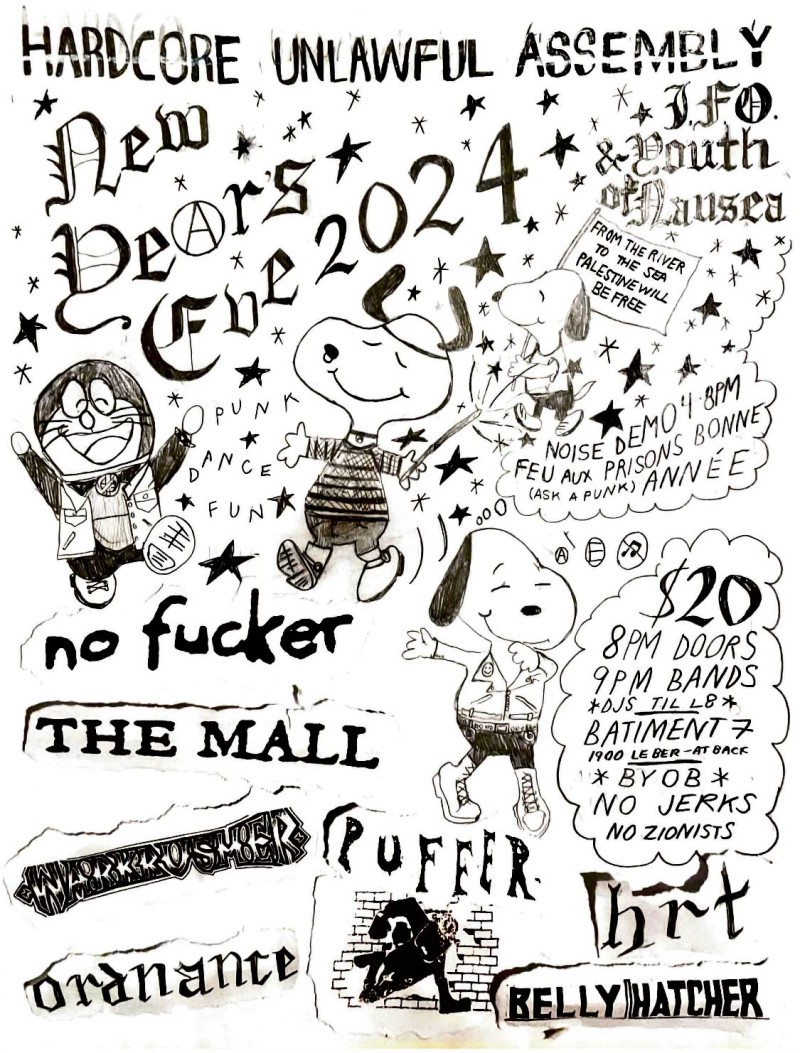 HARDCORE UNLAWFUL ASSEMBLY
New
Year's
Eve 2024
J.F.O.
& Youth
of Nausea
FROM THE RIVER
TO THE SEA
PALESTINE WILL
BE FREE
PUNK
DANCE
FUN
NOISE DEMO 4-8PM
FEU AUX PRISONS BONNE
(ASK A PUNK) ANNÉE
A E
$20
8PM DOORS
9PM BANDS
*DJS TIL L8*
BATIMENT 7
1900 LE BER-AT BACK
* BYOB *
NO JERKS
NO ZIONISTS
no fucker
THE MALL
WARKRUSHER
PUFFER
hrt
ordnance
BELLY HATCHER